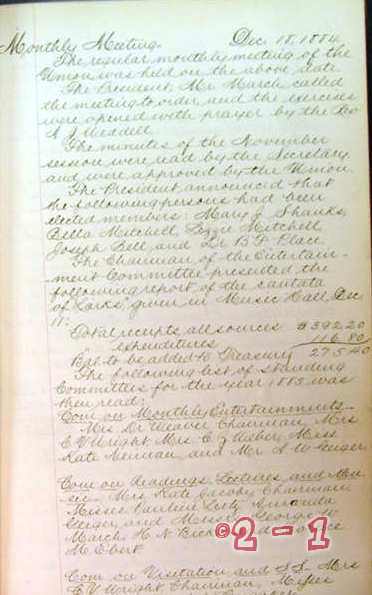 Monthly Meeting. Dec. 18, 1884
The regular monthly meeting of the
Union was held on the above date
The President Mr March called
the meeting to order and the exercises
were opened with prayer by the Rev
A J Weddell
The minutes of the November
session were read by the Secretary
and were approved by the Union.
The President announced that
the following persons had been
elected members: Mary J Shanks,
Bella Mitchell, Lizzie Mitchell
Joseph Bell, and Dr B F Place.
The Chairman of the Entertain-
ment Committee presented the
following report of the cantata
of Larks, given in Music Hall Dec
11:
Total receipts, all sources $392 20
" expenditures 116 80
Bal. to be added to Treasury 275 40
The following list of standing
Committees for the year 1885 was
then read:
Com on Monthly Entertainments.
Mrs Dr Weaver Chairman, Mrs
E V Wright Mrs E J Weber, Miss
Kate Neiman, and Mr A W Geiger
Com on Readings, Lectures, and Mu
sic. Mrs Kate Jacoby Chairman
Misses Pauline Amanda
Geiger, and Messrs George W
March, H N
M Ebert
Com on Visitation and S.S. Mrs
E V Wright Chairman, Misses
©2-1